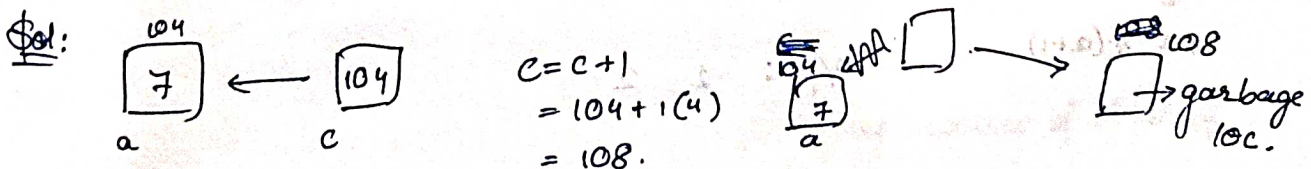 Sol:
104
7
a
104
c
c = c + 1
= 104 + 1(4)
= 108.
104
7
a
108
garbage
loc.